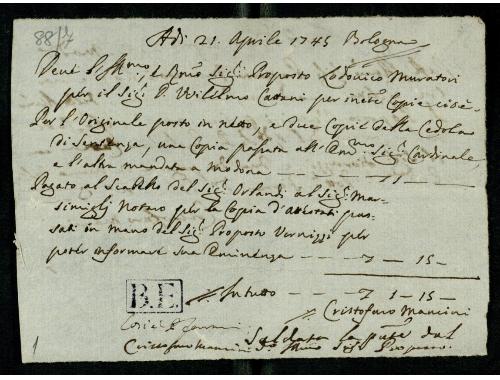 88/7
Adi 21. Aprile 1745 Bologna
Deve l'Illmo, e Rmo Sigr. Proposto Lodovico Muratori
per il Sigr. D. Wilelmo Cattani per inte Copie cioè
Per l'Originale posto in netto, e due Copie della Cedola
di Sentenza, una Copia passata all' Emmo Sigr. Cardinale,
e l'altra mandata a Modona — — — 1 —
Pagato al del Sigr. Orlandi al Sigr. Mar-
simigli Notaro per la Copia d'attestati pas-
sati in mano del Sigr. Proposto Vernizzi per
poter informare Sua Eminenza — — 15 —
B.E.
In tutto — — 1 — 15 —
Cristofaro Mancini
Cristofaro Mancini Sigr.
1